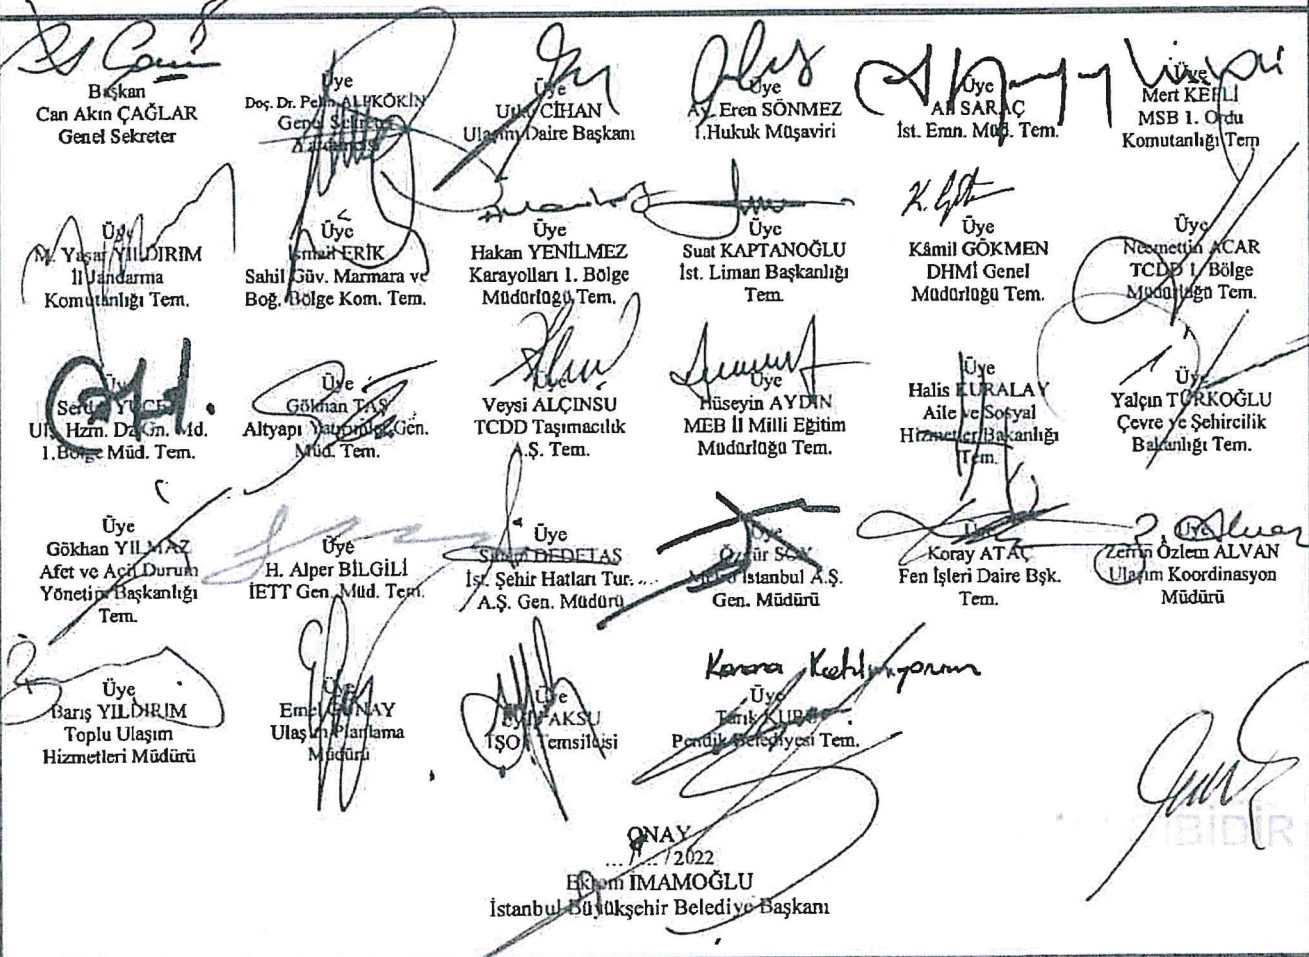 Başkan
Can Akın ÇAĞLAR
Genel Sekreter
Üye
Doç. Dr. Pelin ALPKÖKİN
Genel Sekreter
Yardımcısı
Üye
Utku CİHAN
Ulaşım Daire Başkanı
Üye
Av. Eren SÖNMEZ
1.Hukuk Müşaviri
Üye
Ali SARAÇ
İst. Emn. Müd. Tem.
Üye
Mert
MSB 1. Ordu
Komutanlığı Tem
Üye
M. Yaşar YILDIRIM
İl Jandarma
Komutanlığı Tem.
Üye
İsmail ERİK
Sahil Güv. Marmara ve
Boğ. Bölge Kom. Tem.
Üye
Hakan YENİLMEZ
Karayolları 1. Bölge
Müdürlüğü Tem.
Üye
Suat KAPTANOĞLU
İst. Liman Başkanlığı
Tem.
Üye
Kâmil GÖKMEN
DHMİ Genel
Müdürlüğü Tem.
Üye
Necmettin ACAR
TCDD 1. Bölge
Müdürlüğü Tem.
Üye
Ul. Hzm. Dz. Gn. Md.
1.Bölge Müd. Tem.
Üye
Gökhan TAŞ
Altyapı Yatırımları Gen.
Müd. Tem.
Üye
Veysi ALÇINSU
TCDD Taşımacılık
A.Ş. Tem.
Üye
Hüseyin AYDIN
MEB İl Milli Eğitim
Müdürlüğü Tem.
Üye
Halis KURALAY
Aile ve Sosyal
Hizmetler Bakanlığı
Tem.
Üye
Yalçın TÜRKOĞLU
Çevre ve Şehircilik
Bakanlığı Tem.
Üye
Gökhan YILMAZ
Afet ve Acil Durum
Yönetim Başkanlığı
Tem.
Üye
H. Alper BİLGİLİ
İETT Gen. Müd. Tem.
Üye
Sinem DEDETAŞ
İst. Şehir Hatları Tur. ...
A.Ş. Gen. Müdürü
Üye
Özgür SOY
Metro İstanbul A.Ş.
Gen. Müdürü
Üye
Koray ATAÇ
Fen İşleri Daire Bşk.
Tem.
Üye
Zerrin Özlem ALVAN
Ulaşım Koordinasyon
Müdürü
Üye
Barış YILDIRIM
Toplu Ulaşım
Hizmetleri Müdürü
Üye
Emel GÜNAY
Ulaşım Planlama
Müdürü
Üye
AKSU
Temsilcisi
Karara Katılmıyorum
Üye
Tarık
Pendik Belediyesi Tem.
ONAY
... / ... / 2022
Ekrem İMAMOĞLU
İstanbul Büyükşehir Belediye Başkanı
GİBİDİR